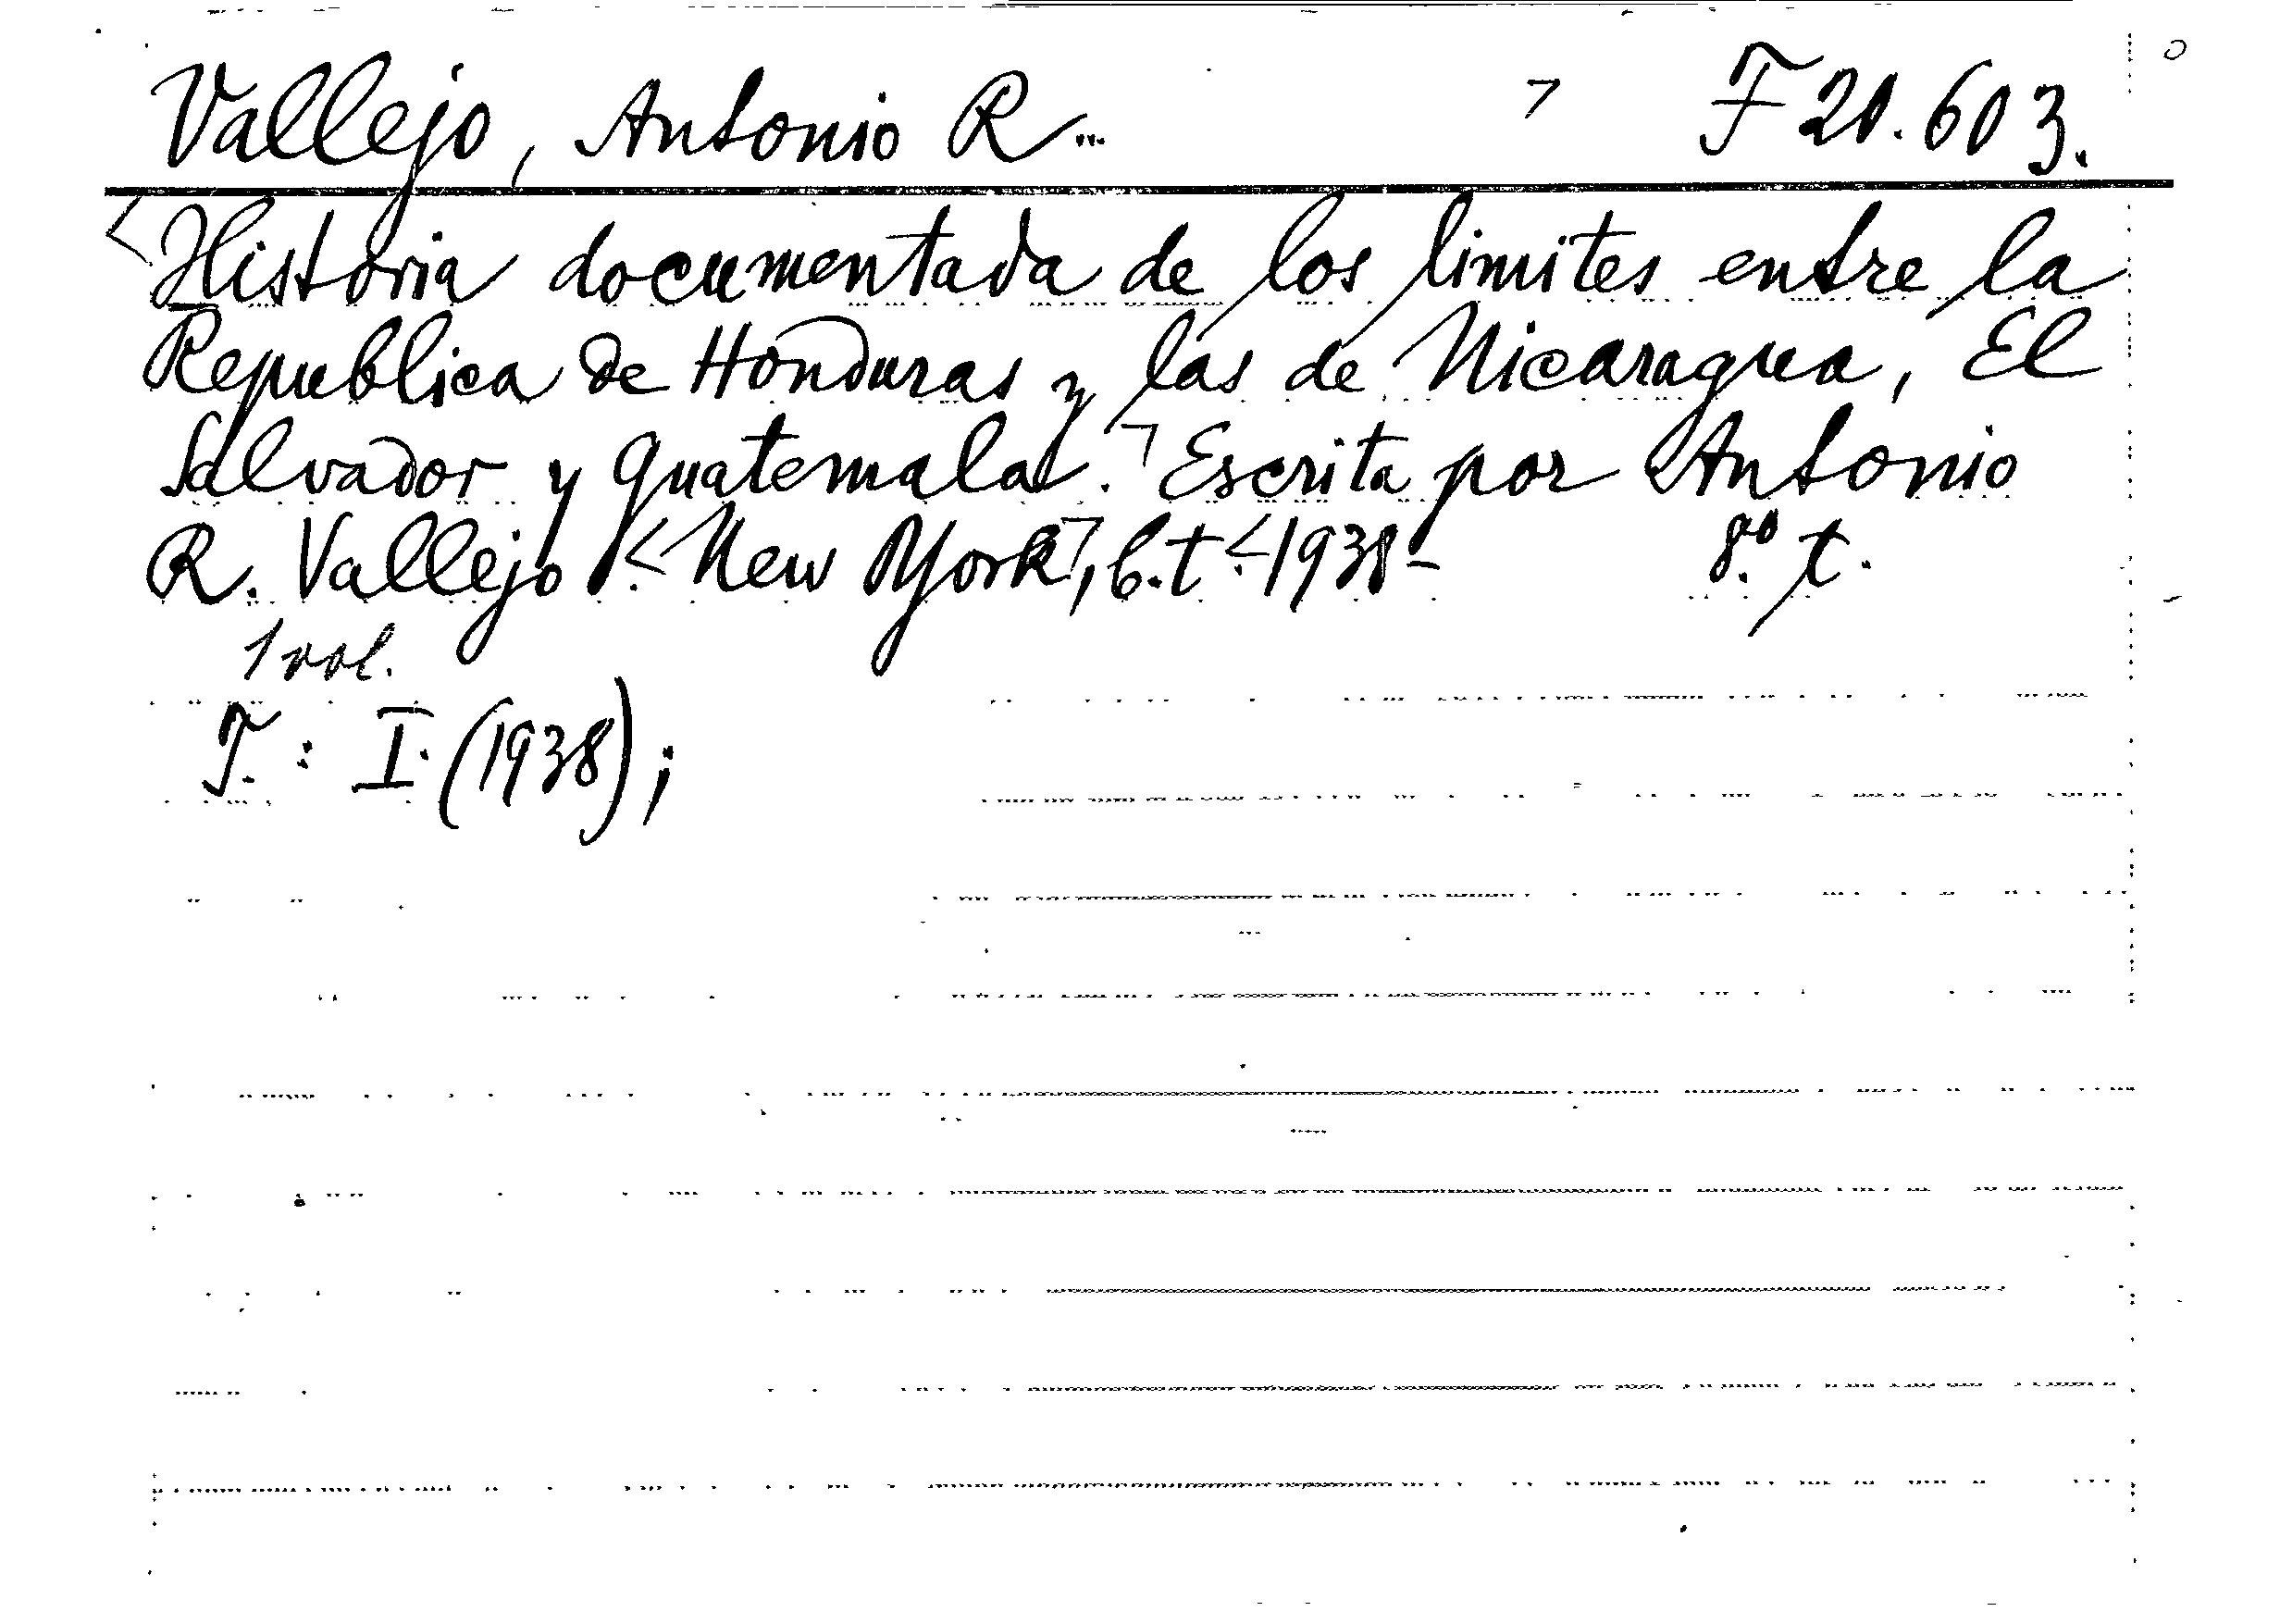 Vallejo, Antonio R... F 20.603.
Historia documentada de los limites entre la
Republica de Honduras y las de Nicaragua, El
Salvador y Guatemala. Escrita por Antonio
R. Vallejo. New York, b.t. 1938- 8º. t.
1 vol.
T. : I (1938);